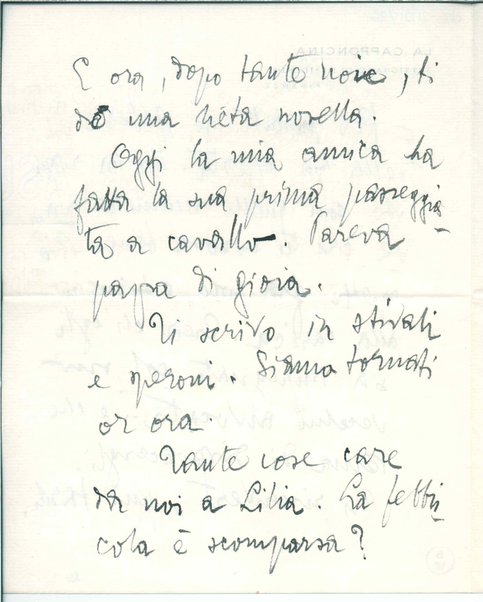 E ora, dopo tante noie, ti
dò una lieta novella.
Oggi la mia amica ha
fatta la sua prima passeggia-
ta a cavallo. Pareva
pazza di gioia.
Ti scrivo in stivali
e speroni. Siamo tornati
or ora.
Tante cose care
da noi a Lilia. La febbri-
cola è scomparsa?
LA CAPPONCINA